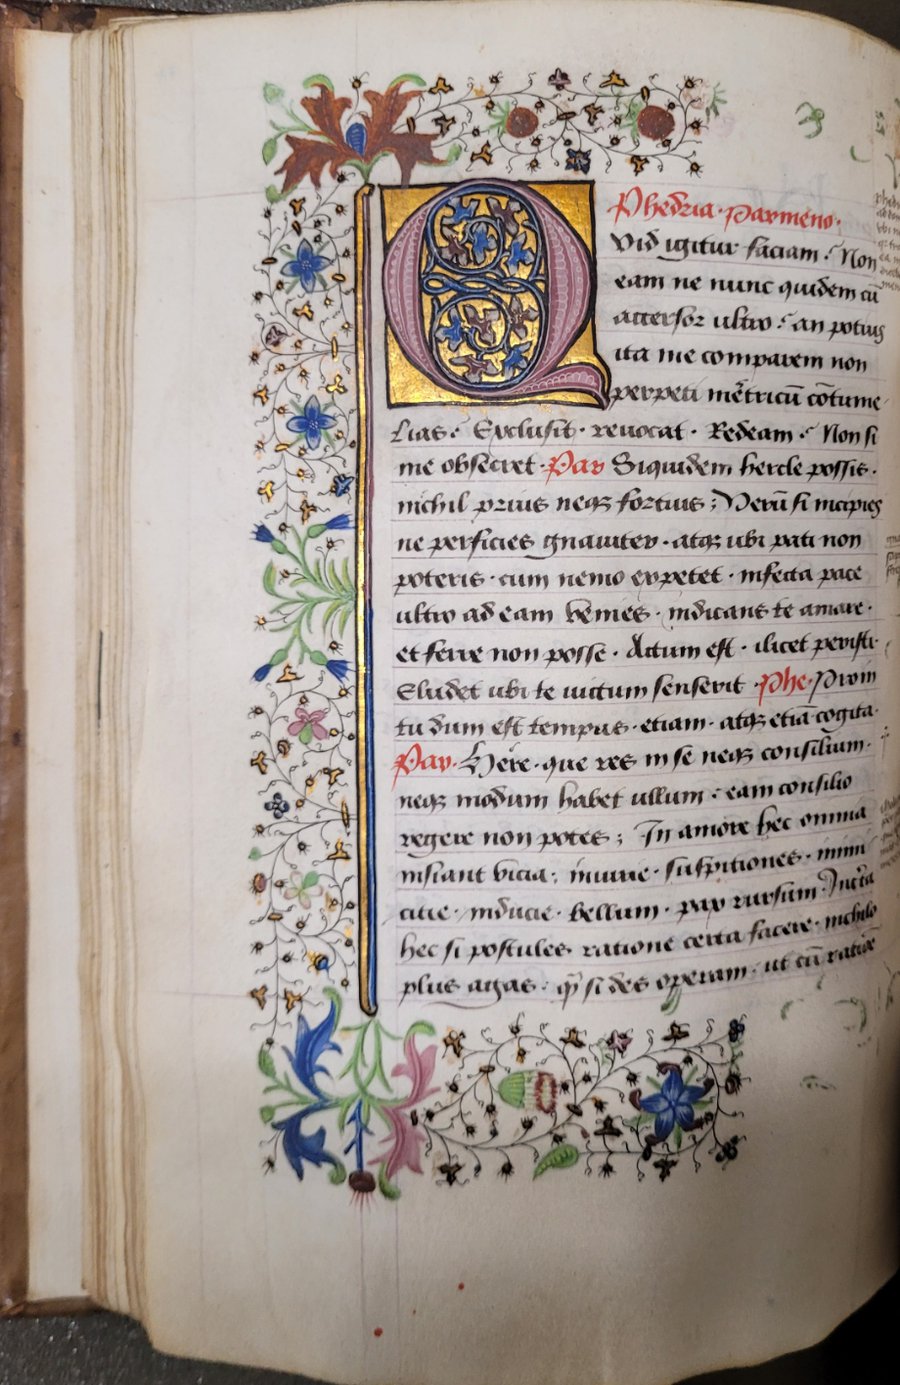 Phedria · Parmeno ·
Quid igitur faciam : Non
eam ne nunc quidem cū
accersor ultro : an potius
ita me comparem non
perpeti mẽtricū cōtume
lias : Exclusit · reuocat · Redeam : Non si
me obsecret · Par Siquidem hercle possis ·
nichil prius neqꝫ fortius ; Verū si incipies
ne perficies gnauiter · atqꝫ ubi pati non
poteris · cum nemo expetet · infecta pace
ultro ad eam venies · indicans te amare ·
et ferre non posse · Actum est · ilicet peristi ·
Eludet ubi te uictum senserit · Phe · Proin
tu dum est tempus · etiam · atqꝫ etiā cogita ·
Par · Here · que res in se neqꝫ consilium ·
neqꝫ modum habet ullum : eam consilio
regere non potes ; In amore hec omnia
insiant vicia ; iniurie · suspitiones · inimi
citie · inducie · bellum · pax rursum · Incẽta
hec si postules ratione certa facere · nichilo
plus agas : ꝙ̄ si des operam · ut cū ratiōe